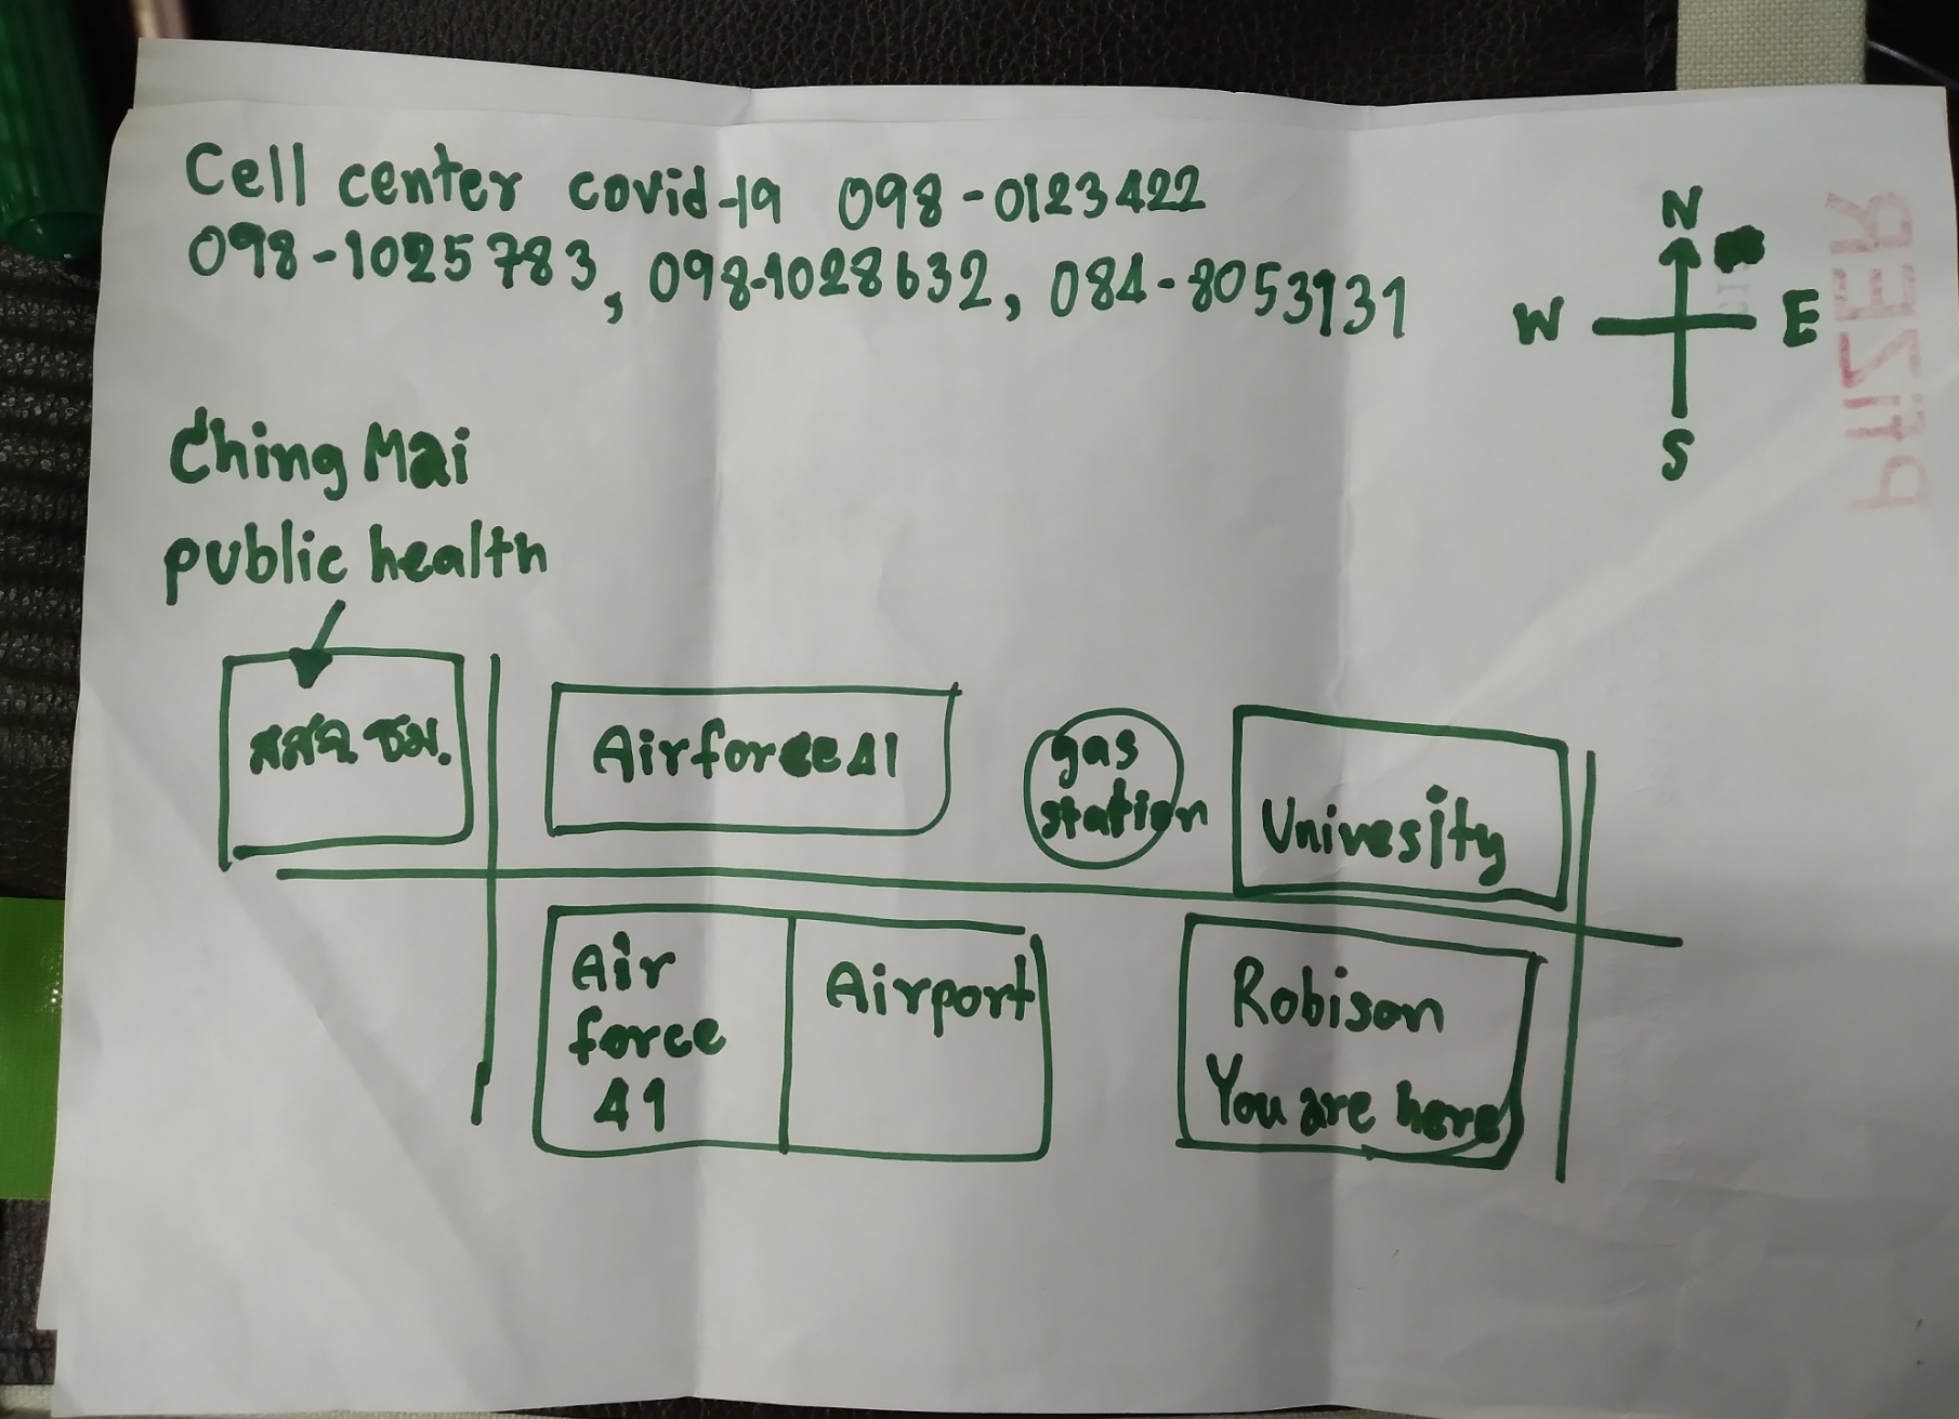 Cell center covid-19 098-0123422
098-1025783, 098-1028632, 084-8053131
N
W E
S
PfIZER
Ching Mai
public health
สสจ ชม.
Airforce 41
gas
station
Univesity
Air
force
41
Airport
Robison
You are here